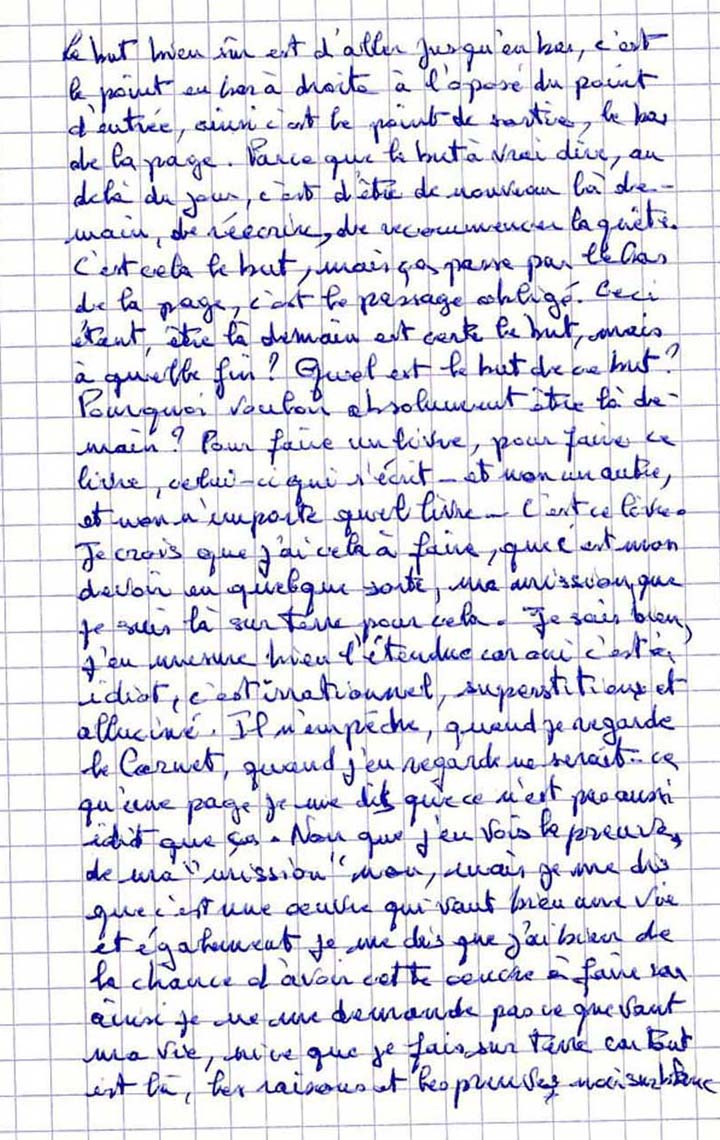 Le but bien sûr est d'aller jusqu'en bas, c'est
le point en bas à droite à l'oposé du point
d'entrée, ainsi c'est le point de sortie, le bas
de la page. Parce que le but à vrai dire, au
delà du jour, c'est d'être de nouveau là de-
main, de réécrire, de recommencer la quête.
C'est cela le but, mais ça passe par le bas
de la page, c'est le passage obligé. Ceci
étant, être là demain est certe le but, mais
à quelle fin ? Quel est le but de ce but ?
Pourquoi vouloir absolument être là de-
main ? Pour faire un livre, pour faire ce
livre, celui-ci qui s'écrit – et non un autre,
et non n'importe quel livre – c'est ce livre.
Je crois que j'ai cela à faire, que c'est mon
devoir en quelque sorte, ma mission, que
je suis là sur Terre pour cela. Je sais bien,
j'en mesure bien l'étendue car oui c'est
idiot, c'est irrationnel, superstitieux et
alluciné. Il n'empêche, quand je regarde
le Carnet, quand j'en regarde ne serait-ce
qu'une page je me dis que ce n'est pas aussi
idiot que ça. Non que j'en vois la preuve,
de ma "mission" non, mais je me dis
que c'est une œuvre qui vaut bien une vie
et également je me dis que j'ai bien de
la chance d'avoir cette à faire car
ainsi je ne me demande pas ce que vaut
ma vie, ni ce que je fais sur Terre car But
est là, les raisons et les preuves, noir sur blanc